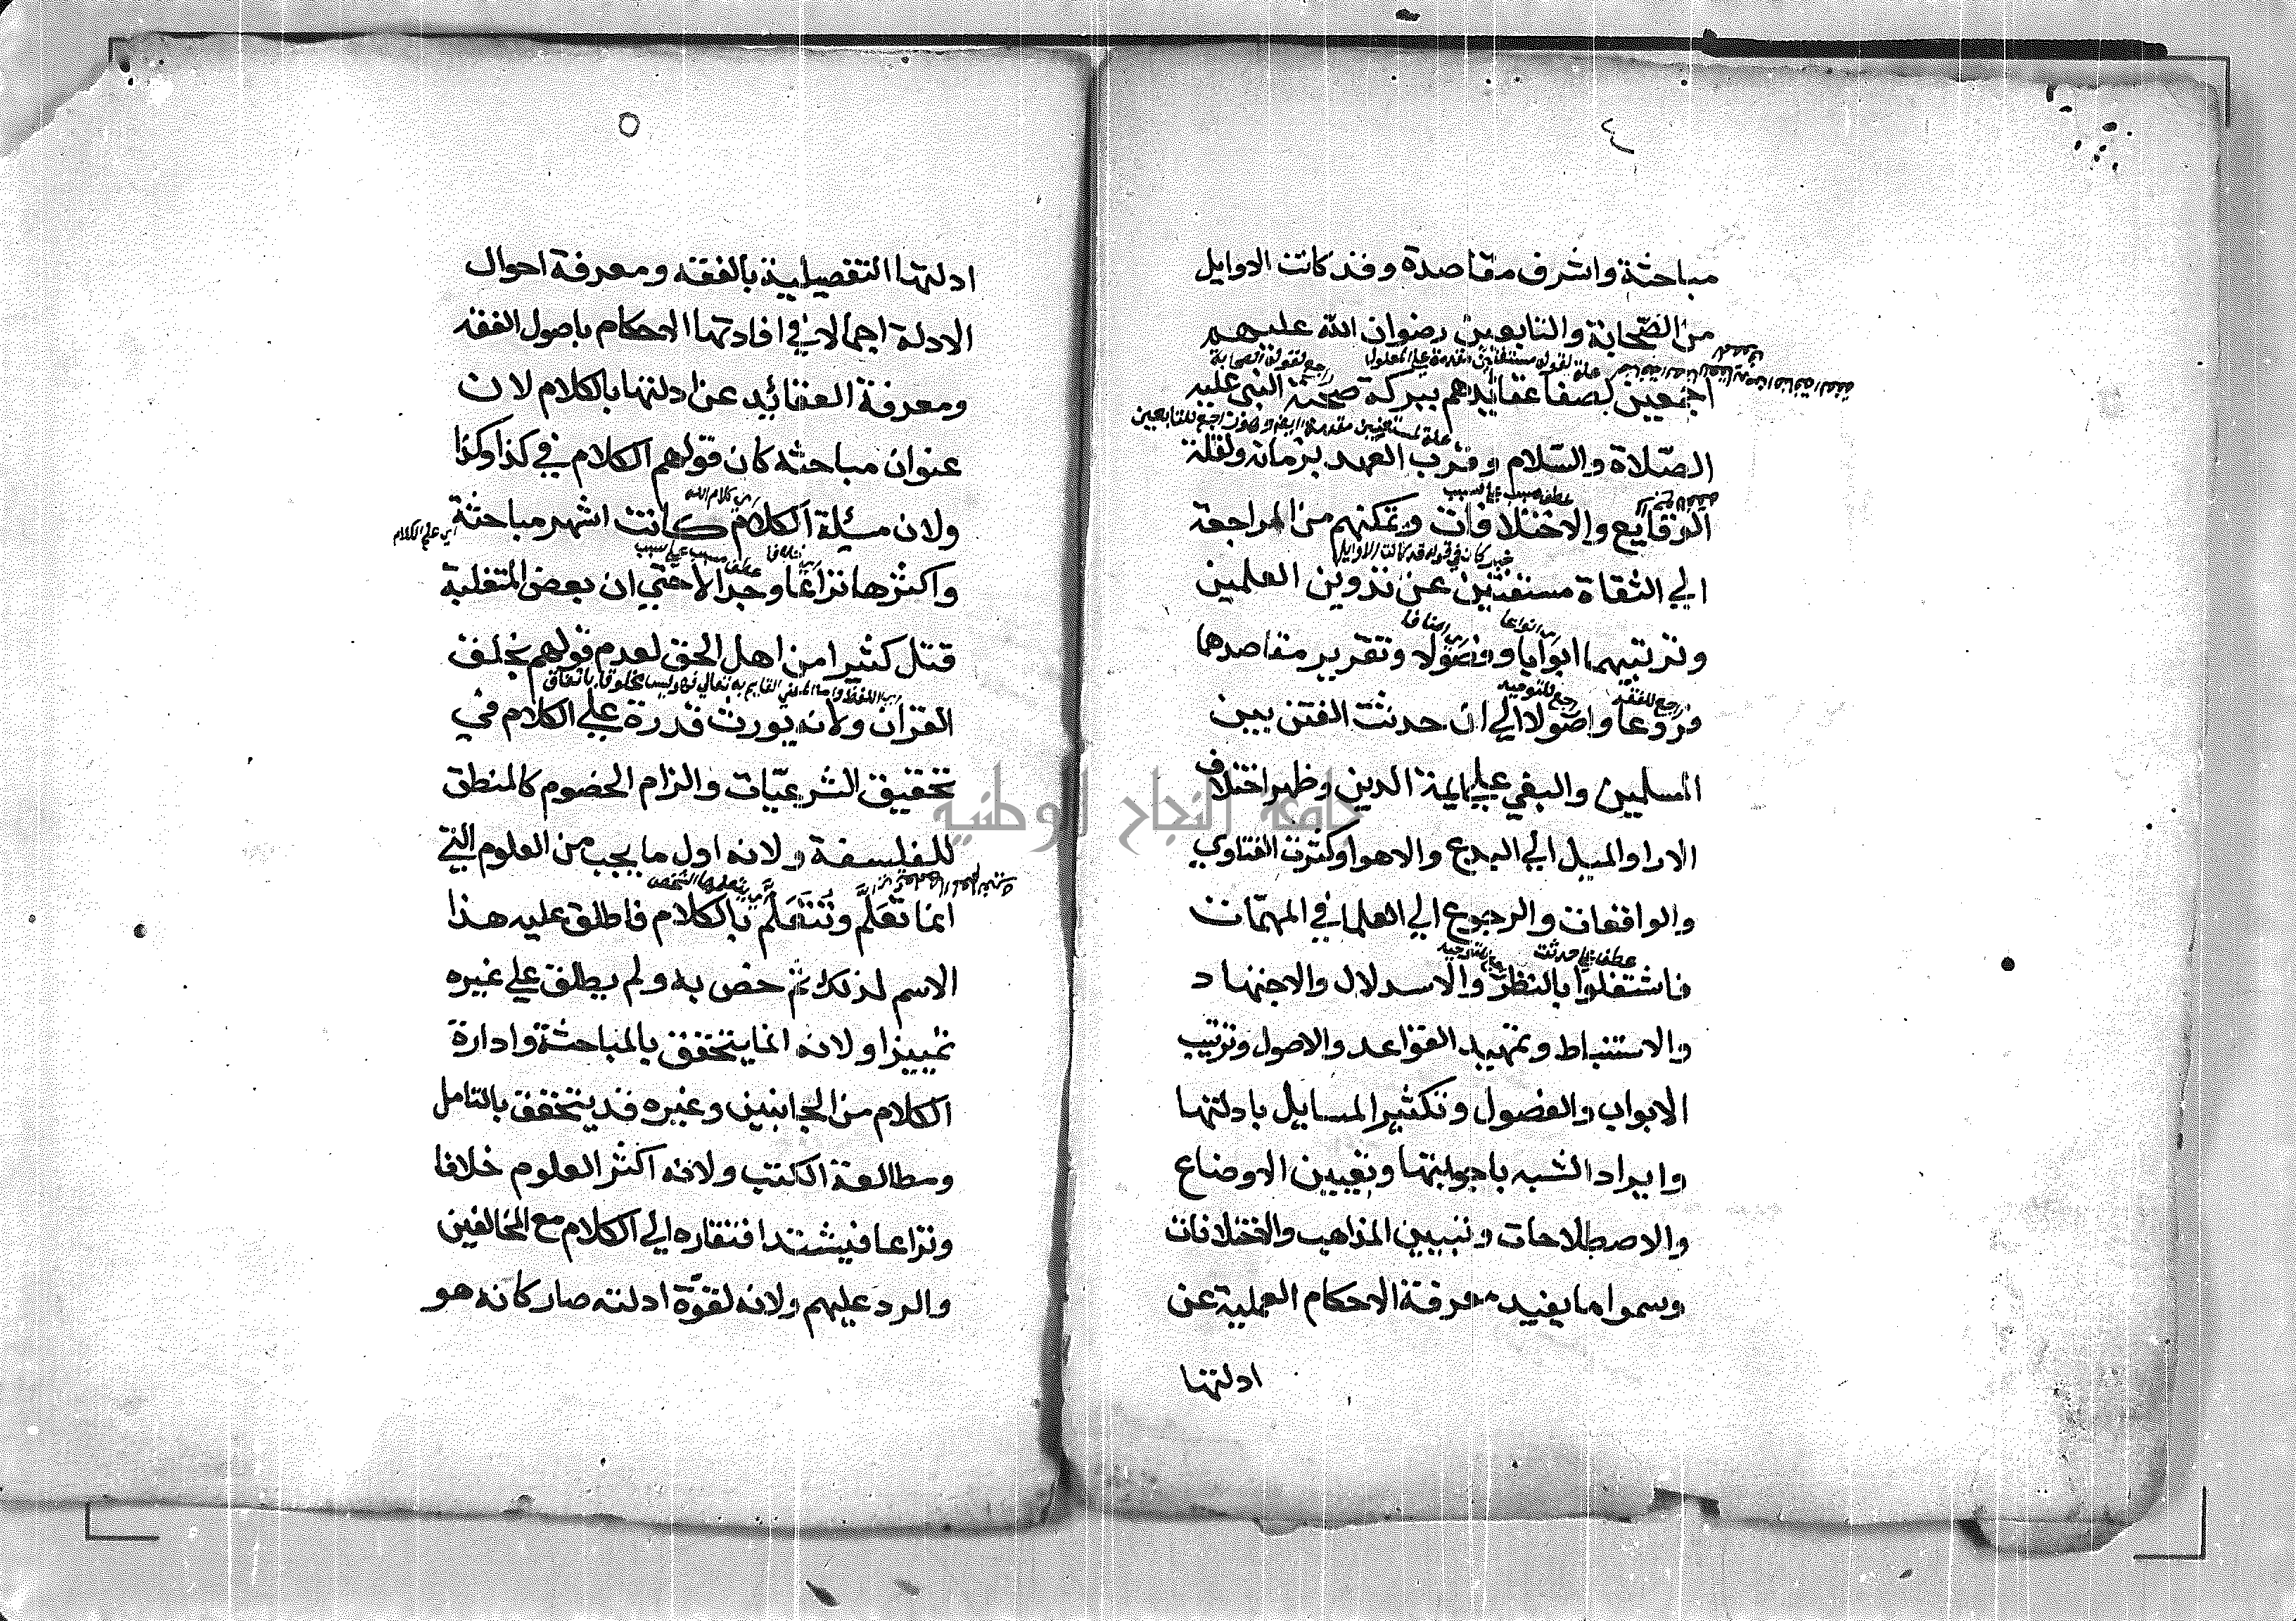 ٤
مباحثة واشرف مقاصدة وقد كانت الاوايل
من الصحابة والتابعين رضوان الله عليهم
علة لقوله مستغنين مقدمة علي المعلول
راجع لقوله الصحابة
اجمعين لصفا عقايدهم ببركة صحبة النبي عليه
علة لمستغنين مقدمة ايضا وهو راجع للتابعين
الصلاة والسلام وقرب العهد بزمانه ولقلة
عطف سبب علي مسبب
الوقايع والاختلافات وتمكنهم من المراجعة
خبر كان في قوله قد كانت الاوايل
الي الثقاة مستغنين عن تدوين العلمين
اي انواعا
اي اصنافا
وترتيبهما ابوابا وفصولا وتقرير مقاصدهما
راجع للفقه
راجع للتوحيد
فروعا واصولا الي ان حدثت الفتن بين
المسلمين والبغي علي ايمة الدين وظهر اختلاف
الارا والميل الي البدع والاهوا وكثرت الفتاوي
والواقعات والرجوع الي العلما في المهمات
عطف علي حدثت
فاشتغلوا بالنظر والاسدلال والاجتهاد
والاستنباط وتمهيد القواعد والاصول وترتيب
الابواب والفصول وتكثير المسايل بادلتها
وايراد الشبه باجوبتها وتعيين الاوضاع
والاصطلاحات وتبيين المذاهب والاختلافات
وسموا ما يفيد معرفة الاحكام العملية عن
ادلتها
٥
ادلتها التفصيلية بالفقه ومعرفة احوال
الادلة اجمالا في افادتها الاحكام باصول الفقه
ومعرفة العقائيد عن ادلتها بالكلام لان
عنوان مباحثه كان قولهم الكلام في كذا وكذا
اي كلام الله
ولان مسئلة الكلام كانت اشهر مباحثة
اي علم الكلام
عطف مسبب علي سبب
واكثرها نزاعا وجدالا حتي ان بعض المتغلبة
قتل كثيرا من اهل الحق لعدم قولهم بخلق
اي اللفظ واما المعني القايم به تعالي فهو ليس مخلوقا باتفاق
القران ولانه يورث قدرة علي الكلام في
تحقيق الشرعيات والزام الخصوم كالمنطق
للفلسفة ولانه اول ما يجب من العلوم التي
انما تعلم وتتعلم بالكلام فاطلق عليه هذا
الاسم لذلك ثم خص به ولم يطلق علي غيره
تمييزا ولانه انما يتحقق بالمباحثة وادارة
الكلام من الجانبين وغيره قد يتحقق بالتامل
ومطالعة الكتب ولانه اكثر العلوم خلافا
ونزاعا فيشتد افتقاره الي الكلام مع المخالفين
والرد عليهم ولانه لقوة ادلته صار كانه هو
جامعة النجاح الوطنية